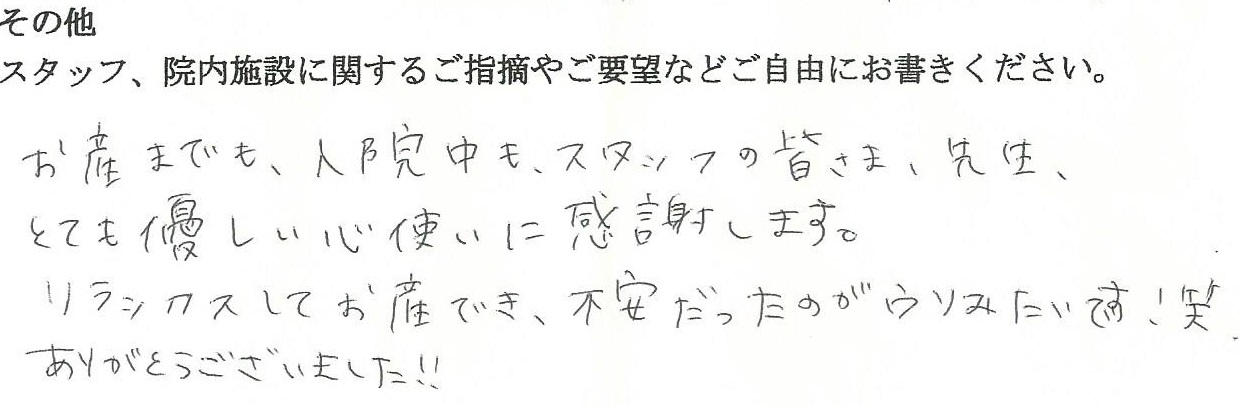 その他
スタッフ、院内施設に関するご指摘やご要望などご自由にお書きください。
お産までも、入院中も、スタッフの皆さま、先生、
とても優しい心使いに感謝します。
リラックスしてお産でき、不安だったのがウソみたいです！笑
ありがとうございました!!